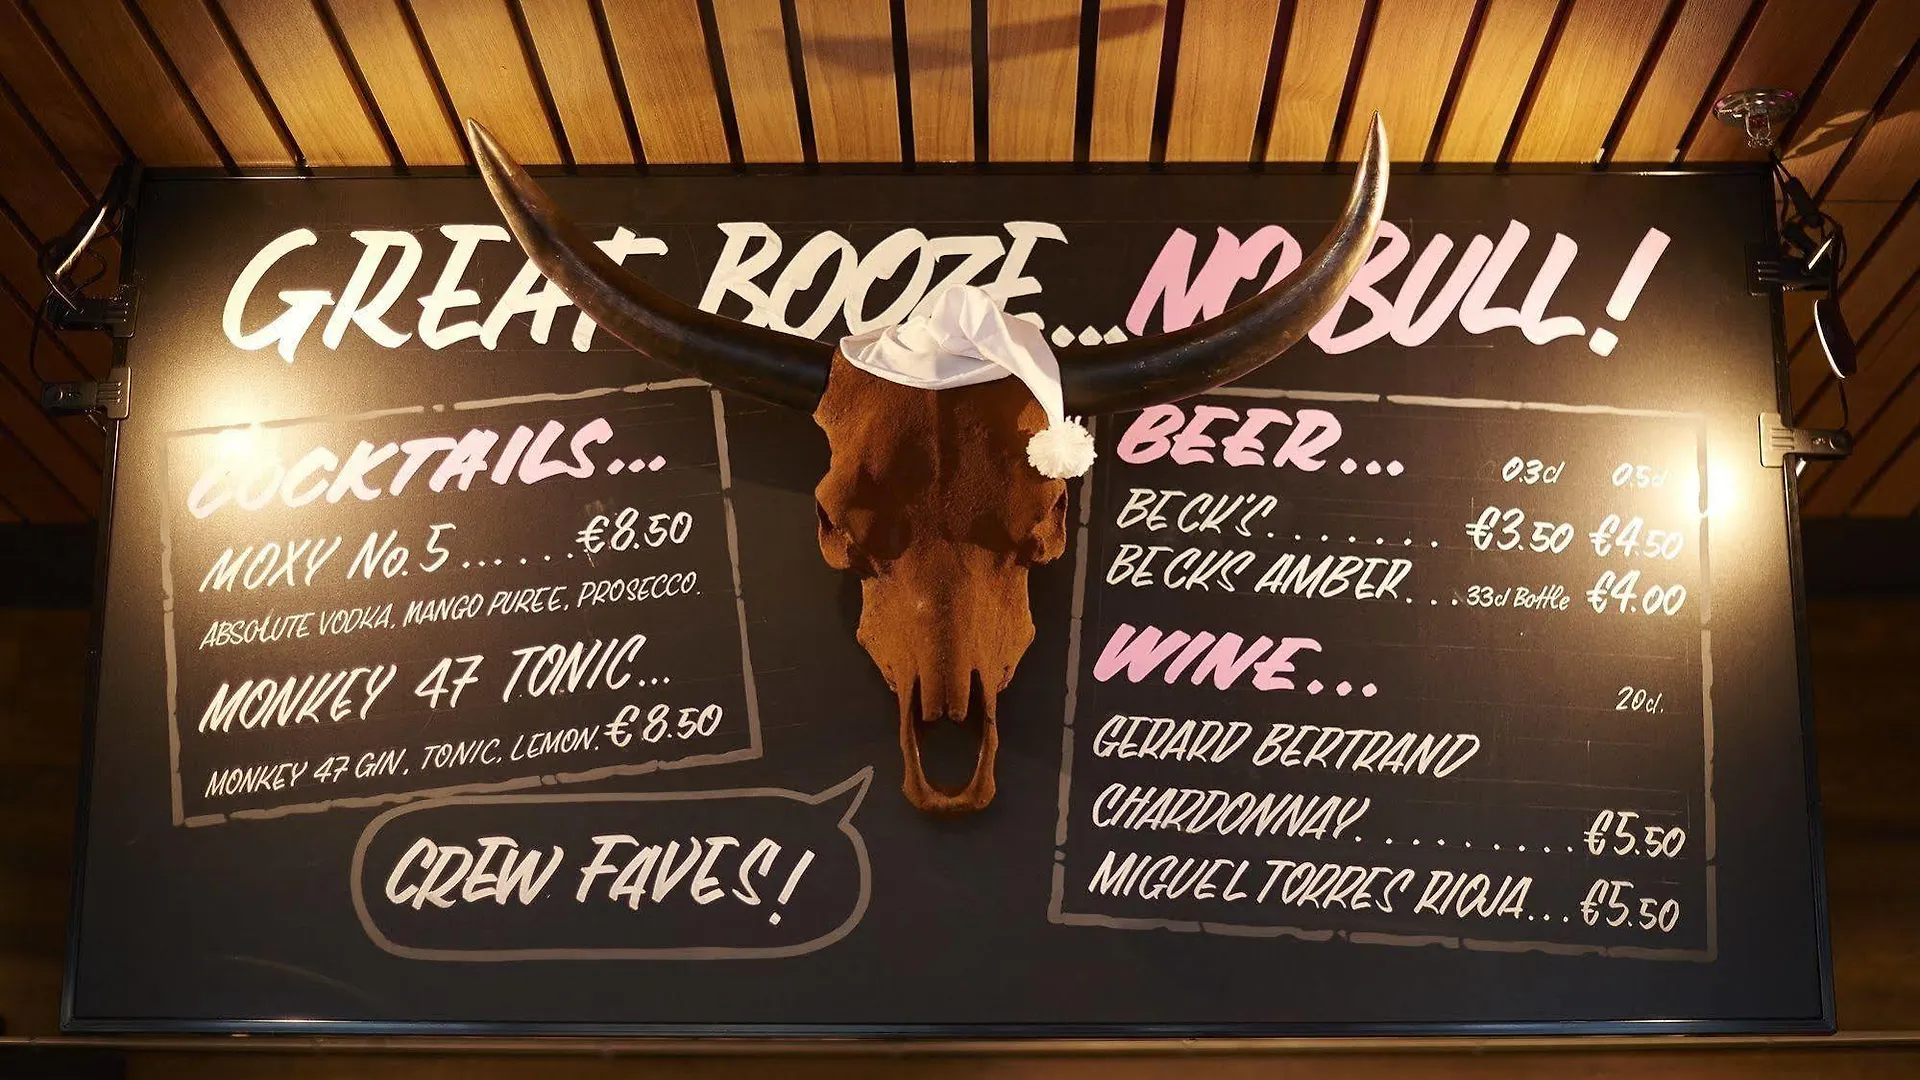 GREAT BOOZE... NO BULL!
COCKTAILS...
MOXY No. 5......€8.50
ABSOLUTE VODKA, MANGO PUREE, PROSECCO.
MONKEY 47 TONIC...
MONKEY 47 GIN, TONIC, LEMON. €8.50
CREW FAVES!
BEER... 0.3cl 0.5cl
BECK'S....... €3.50 €4.50
BECKS AMBER...33cl Bottle €4.00
WINE...
20cl.
GERARD BERTRAND
CHARDONNAY..........€5.50
MIGUEL TORRES RIOJA...€5.50